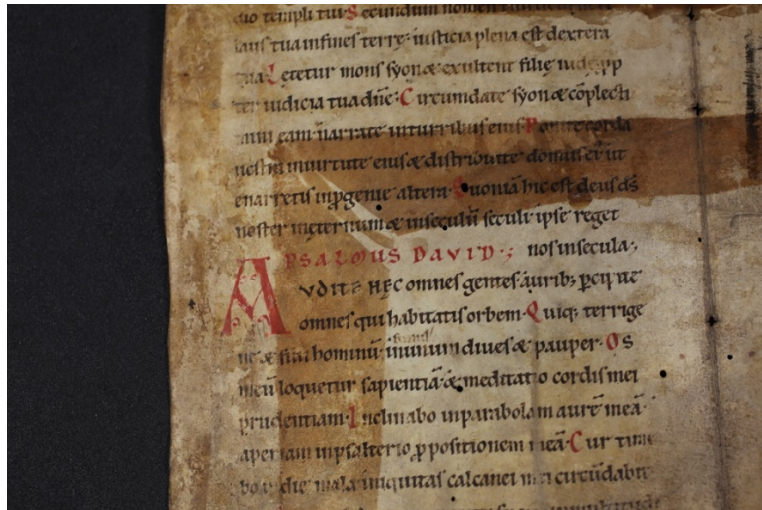 tuū templi tui · Secundum nomen
laus tua in fines terrę · iusticia plena est dextera
tua · Lętetur mons syon & exultent filię iudę pp
ter iudicia tua dn̄e · Circumdate syon & cōplecti
mini eam · narrate in turribus eius · Ponite corda
uestra in uirtute eius & distribuite domus ei᷒ ut
enarretis in p̱genie altera · Quoniā hic est deus ds̄
noster in ęternum & in seculū seculi ipse reget
PSALMUS DAVID · ; nos in secula ·,
AVDITE HĘC omnes gentes · aurib; pcipite
omnes qui habitatis orbem · Quiq; terrige
nę & filii hominū · simul in unum diues & pauper · OS
meū loquetur sapientiā · & meditatio cordis mei
prudentiam · Inclinabo in parabolam aurē meā ·
aperiam in psalterio ꝓpositionem meā · Cur time
bo in die mala · iniquitas calcanei mei circūdabit